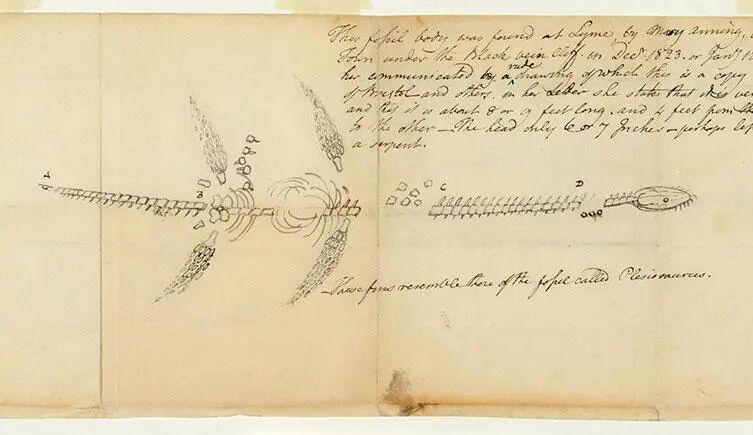 This fossil body was found at Lyme, by Mary Anning,
Town under the Black vein Cliff. in Decr. 1823. or Jany.
her communicated by a rude drawing of which this is a copy
of Bristol and others. in her letter she states that it is
and this it is about 8 or 9 feet long. and 4 feet from
to the other — The head only 6 or 7 Inches — perhaps
a serpent.
A
B
C
D
— These fins resemble those of the fossil called Plesiosaurus.